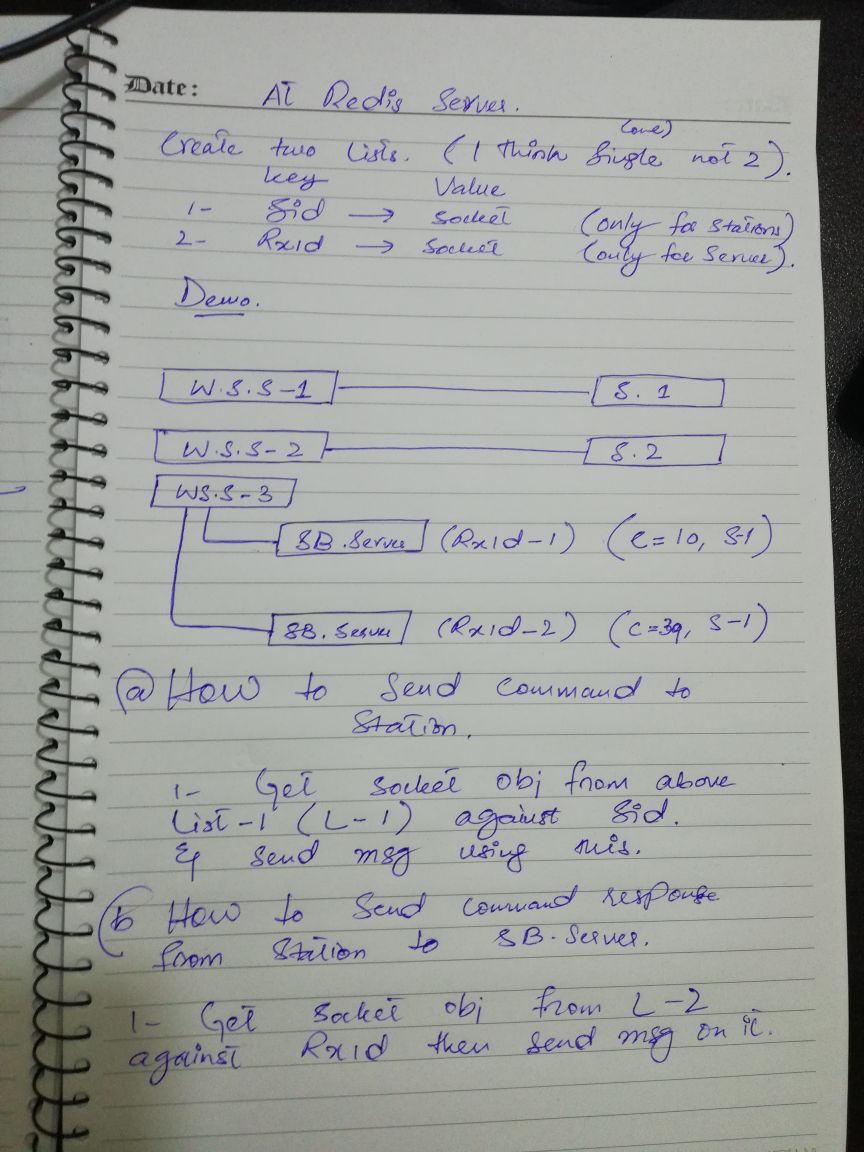 Date:
At Redis Server.
(one)
Create two lists. (I think single not 2).
key Value
1- Sid → socket (only for stations)
2- Rxid → socket (only for Server).
Demo.
W.S.S-1 S. 1
W.S.S-2 S.2
WS.S-3
SB.Server (Rxid-1) (C=10, S-1)
SB. Server (Rxid-2) (C=39, S-1)
(a) How to Send Command to
Station.
1- Get socket obj from above
List-1 (L-1) against Sid.
& send msg using this.
(b How to Send command response
from Station to SB-Server.
1- Get Socket obj from L-2
against Rxid then send msg on it.